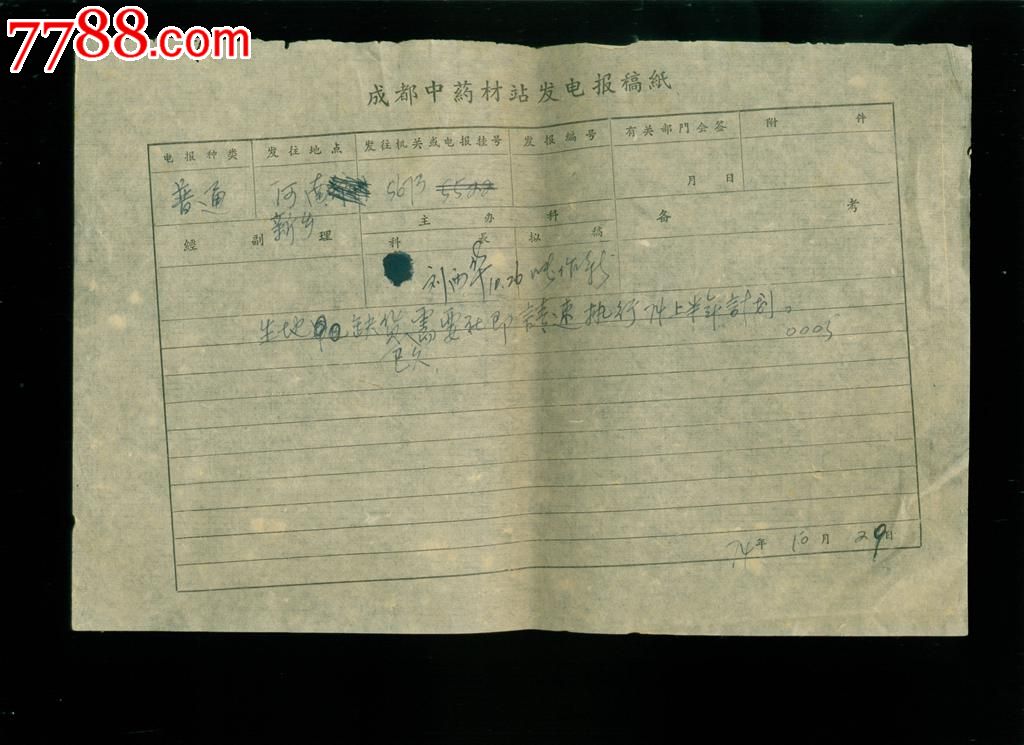 7788.com
成都中葯材站发电报稿紙
电报种类 发往地点 发往机关或电报挂号 发报编号 有关部門会签 附件
普通 河南 5613 5500 月 日
新乡
經副理 主办科 备考
科長 拟稿
刘西 10.26
生地 缺货需要社即請速执行74上半年計划。
已久 0003
74年 10月 29日